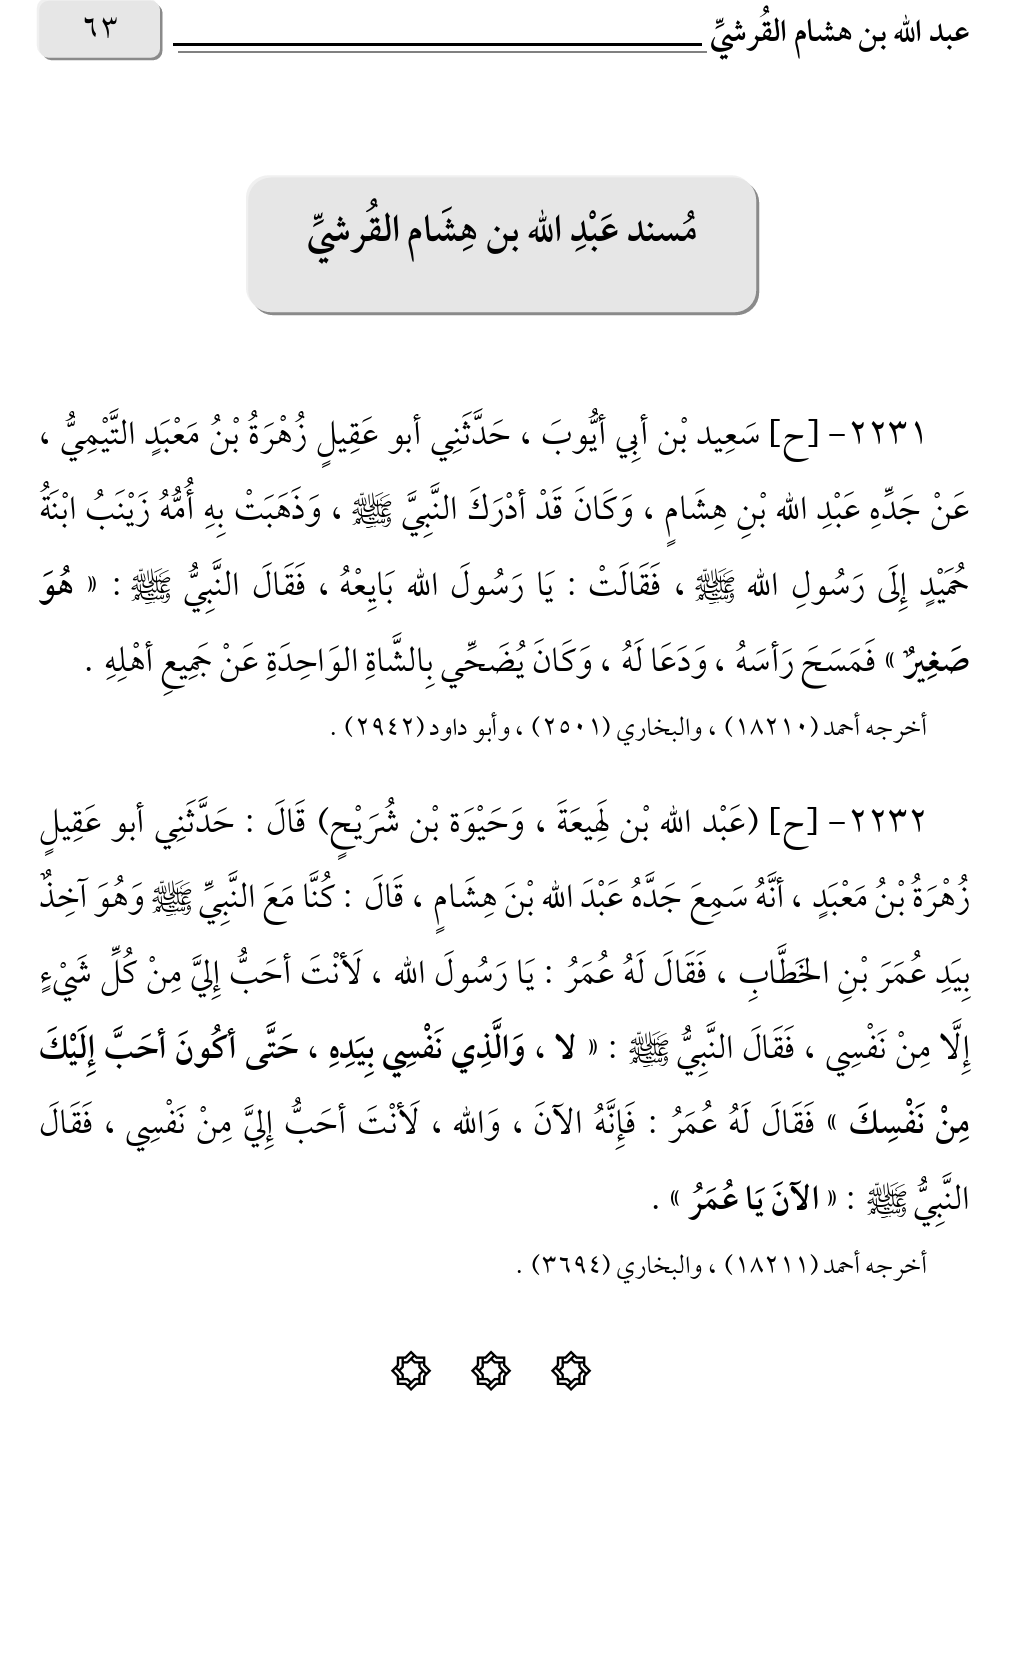 عبد الله بن هشام القُرشيِّ
٦٣
مُسند عَبْدِ الله بن هِشَام القُرشيِّ
٢٢٣١- [ح] سَعِيد بْن أَبِي أيُّوبَ ، حَدَّثَنِي أبو عَقِيلٍ زُهْرَةُ بْنُ مَعْبَدٍ التَّيْمِيُّ ،
عَنْ جَدِّهِ عَبْدِ الله بْنِ هِشَامٍ ، وَكَانَ قَدْ أدْرَكَ النَّبِيَّ ﷺ ، وَذَهَبَتْ بِهِ أُمُّهُ زَيْنَبُ ابْنَةُ
حُمَيْدٍ إِلَى رَسُولِ الله ﷺ ، فَقَالَتْ : يَا رَسُولَ الله بَايِعْهُ ، فَقَالَ النَّبِيُّ ﷺ : « هُوَ
صَغِيرٌ » فَمَسَحَ رَأسَهُ ، وَدَعَا لَهُ ، وَكَانَ يُضَحِّي بِالشَّاةِ الوَاحِدَةِ عَنْ جَمِيعِ أهْلِهِ .
أخرجه أحمد (١٨٢١٠) ، والبخاري (٢٥٠١) ، وأبو داود (٢٩٤٢) .
٢٢٣٢- [ح] (عَبْد الله بْن لَهِيعَةَ ، وَحَيْوَة بْن شُرَيْحٍ) قَالَ : حَدَّثَنِي أبو عَقِيلٍ
زُهْرَةُ بْنُ مَعْبَدٍ ، أنَّهُ سَمِعَ جَدَّهُ عَبْدَ الله بْنَ هِشَامٍ ، قَالَ : كُنَّا مَعَ النَّبِيِّ ﷺ وَهُوَ آخِذٌ
بِيَدِ عُمَرَ بْنِ الخَطَّابِ ، فَقَالَ لَهُ عُمَرُ : يَا رَسُولَ الله ، لَأنْتَ أحَبُّ إِليَّ مِنْ كُلِّ شَيْءٍ
إِلَّا مِنْ نَفْسِي ، فَقَالَ النَّبِيُّ ﷺ : « لا ، وَالَّذِي نَفْسِي بِيَدِهِ ، حَتَّى أكُونَ أحَبَّ إِلَيْكَ
مِنْ نَفْسِكَ » فَقَالَ لَهُ عُمَرُ : فَإِنَّهُ الآنَ ، وَالله ، لَأنْتَ أحَبُّ إِليَّ مِنْ نَفْسِي ، فَقَالَ
النَّبِيُّ ﷺ : « الآنَ يَا عُمَرُ » .
أخرجه أحمد (١٨٢١١) ، والبخاري (٣٦٩٤) .